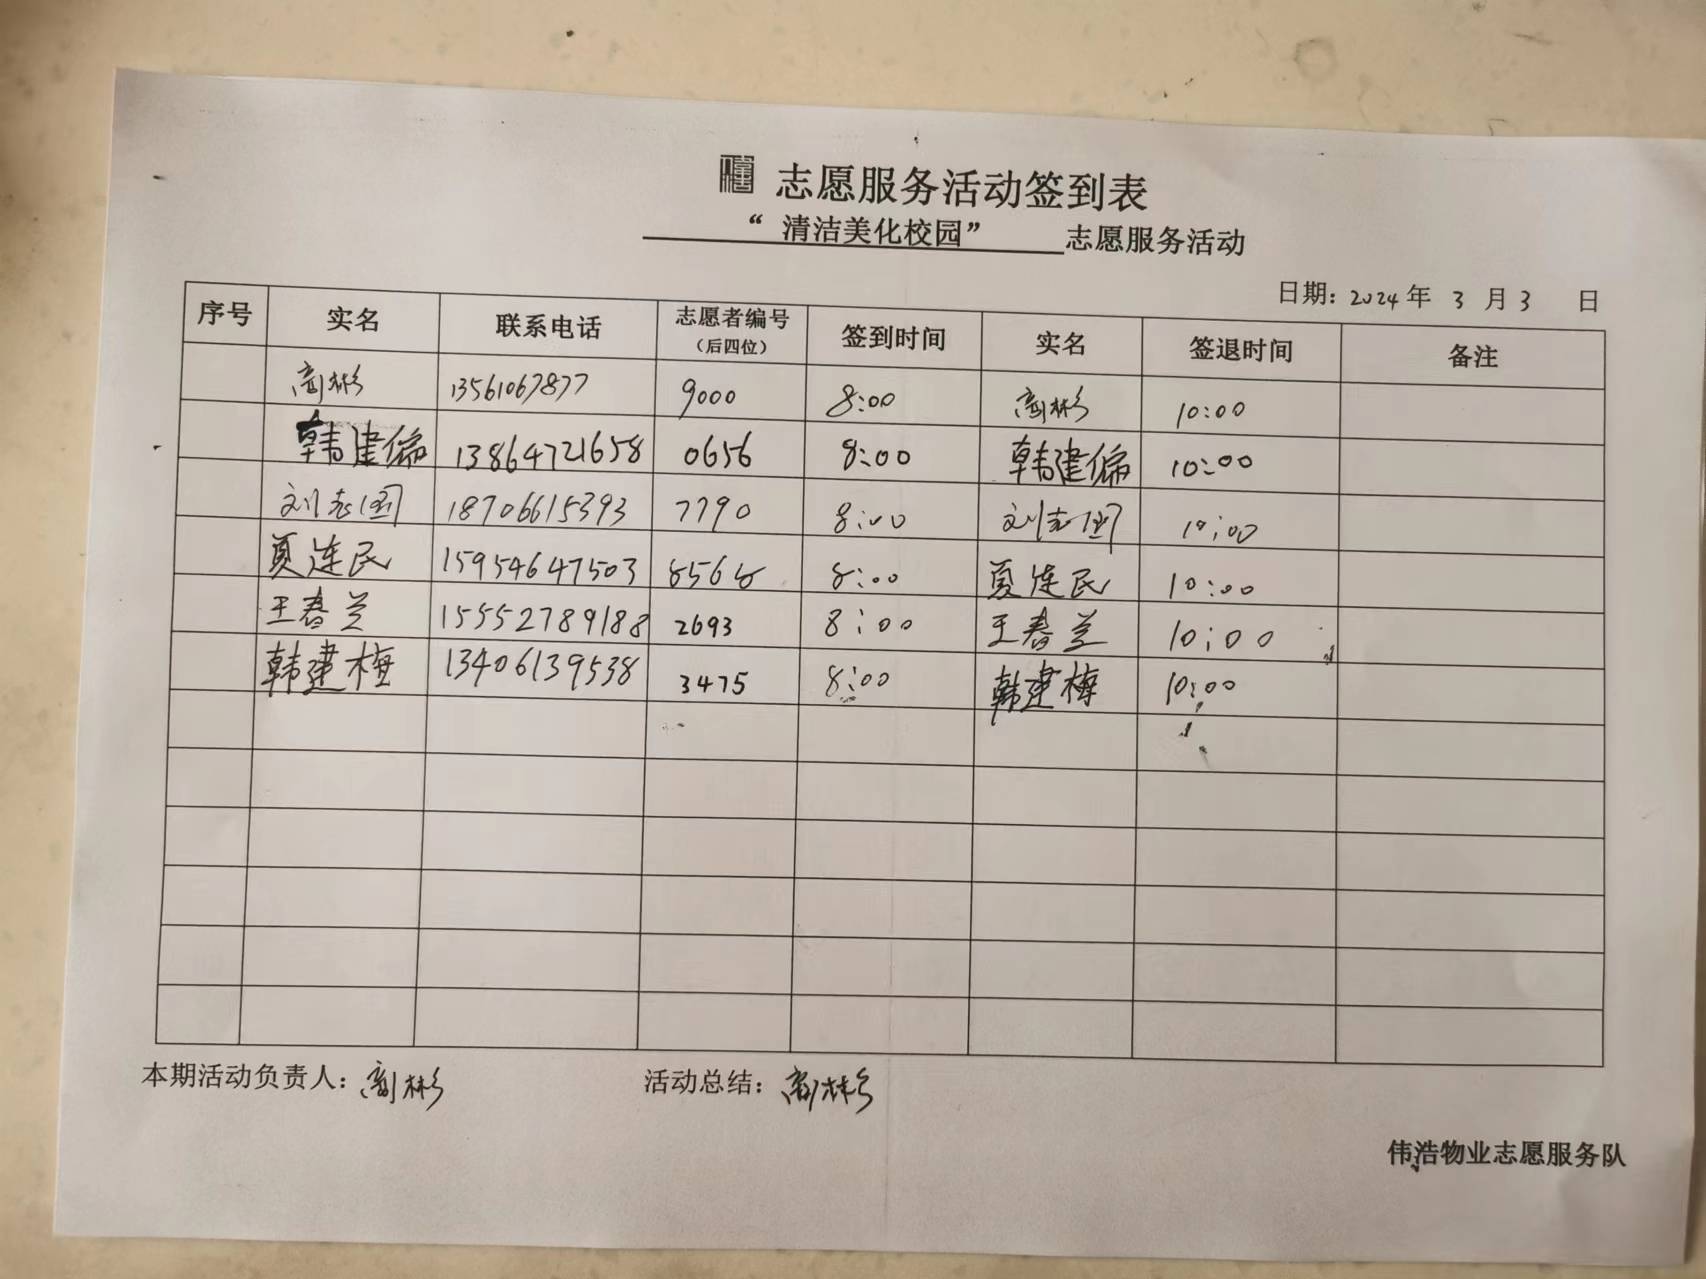 志愿服务活动签到表
“清洁美化校园” 志愿服务活动
日期: 2024 年 3 月 3 日
序号 实名 联系电话 志愿者编号（后四位） 签到时间 实名 签退时间 备注
彬 13561067877 9000 8:00 彬 10:00
韩建 13864721658 0656 8:00 韩建 10:00
刘志国 18706615393 7790 8:00 刘志国 10:00
夏连民 15954647503 8568 8:00 夏连民 10:00
王春兰 15552789188 2693 8:00 王春兰 10:00
韩建梅 13406139538 3475 8:00 韩建梅 10:00
本期活动负责人: 彬 活动总结: 彬
伟浩物业志愿服务队